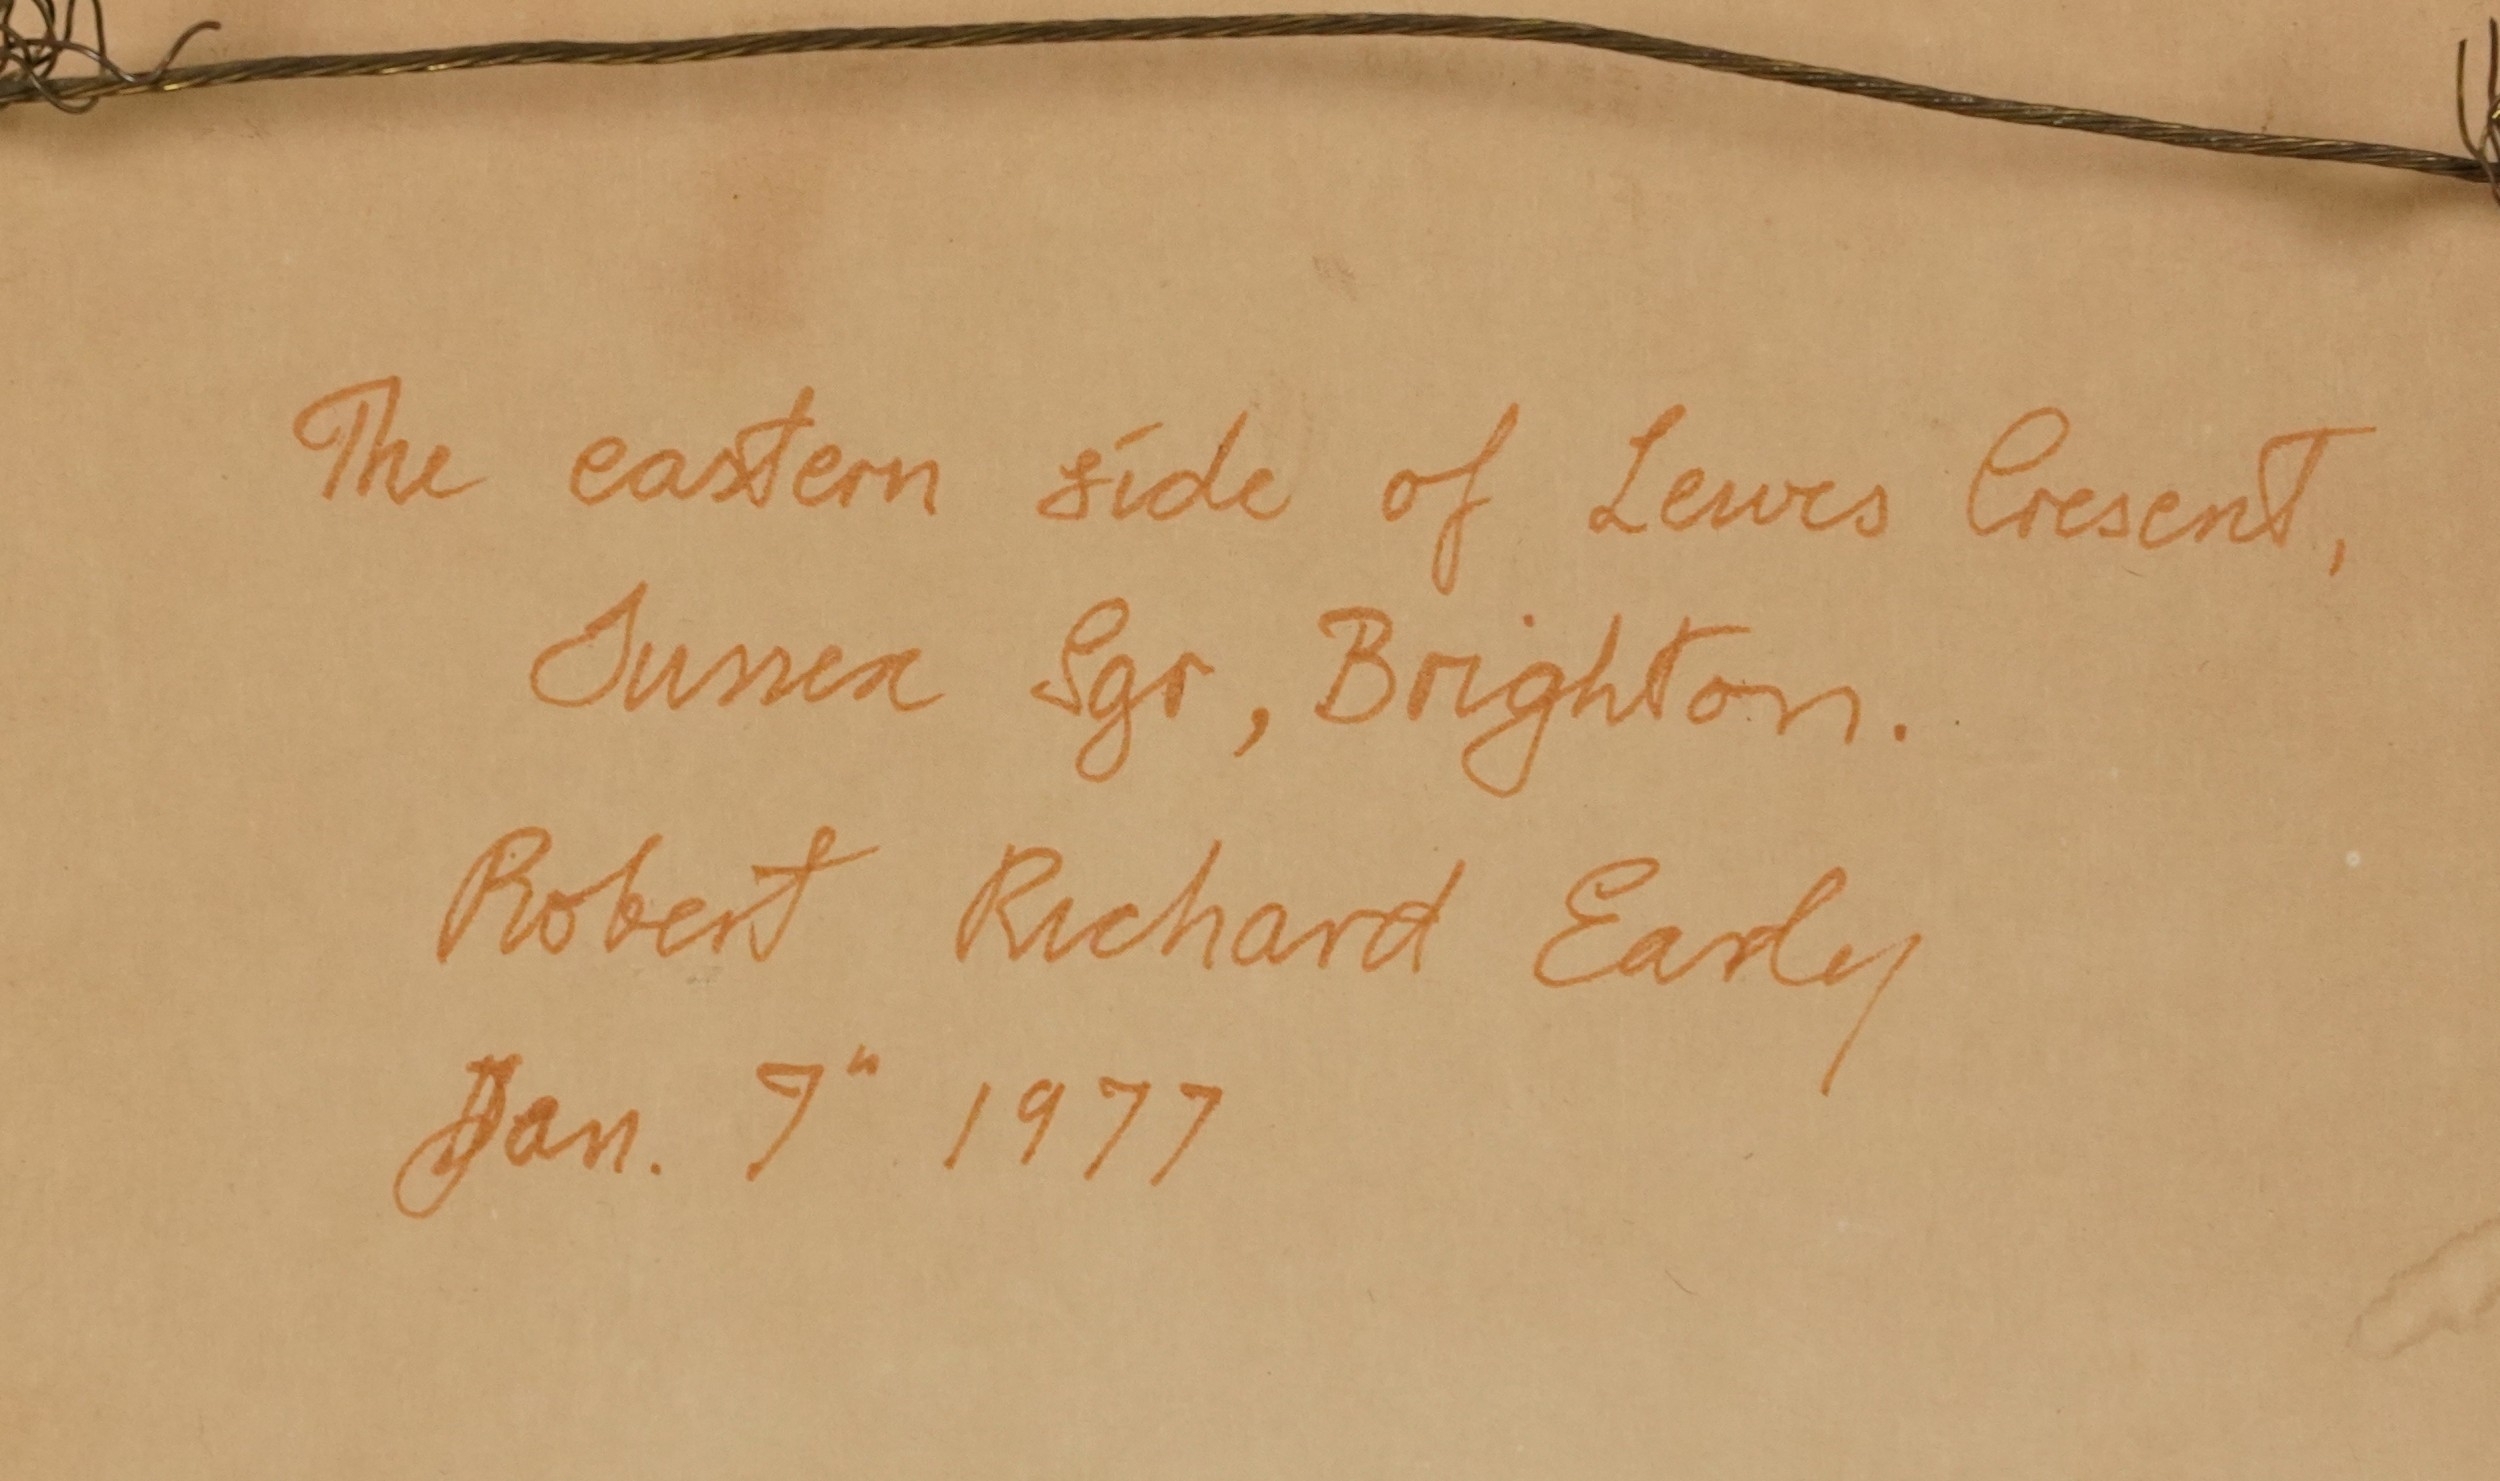 The eastern side of Lewes Cresent,
Sussex Sqr, Brighton.
Robert Richard Early
Jan. 7" 1977